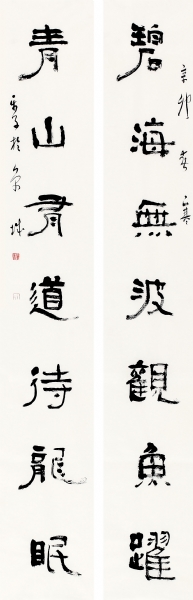 碧海無波觀魚躍
辛卯春寒
青山有道待龍眠
於京城